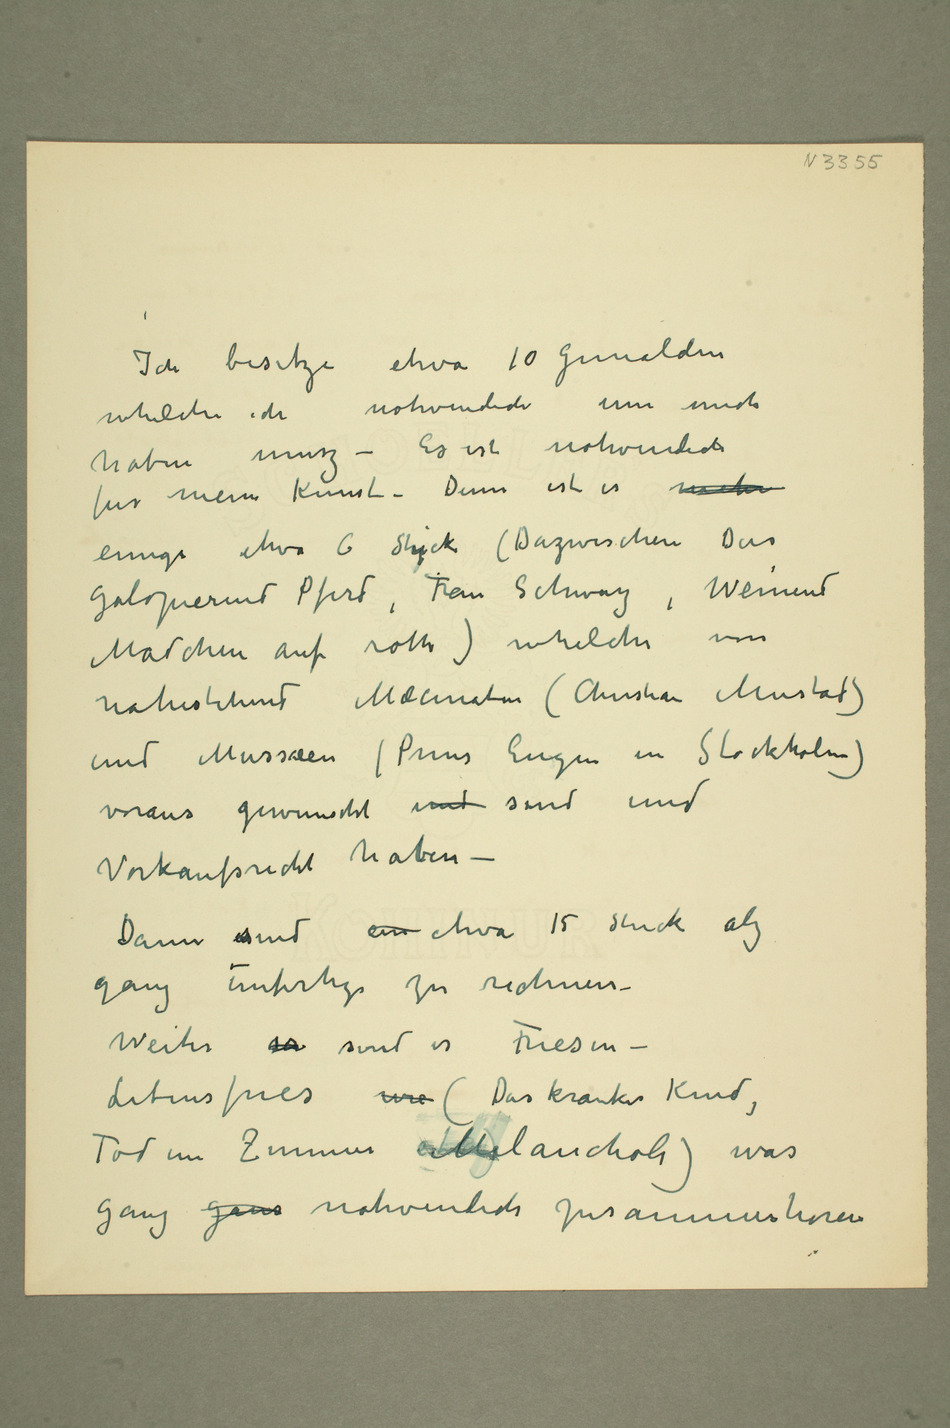 N 3355
Ich besitze etwa 10 Gemälden
whelche ich nothvendich um mich
haben musz – Es ist nothvendich
für meine Kunst – Denn ist es mehr
einige etwa 6 Stück (Dazwischen Das
galopierend Pferd, Frau Schwarz, Weinend
Mädchen auf rothe) whelche von
nahestehend Mæcenaten (Christian Mustad)
und Mussæen (Prins Eugen in Stockholm)
voraus gewunscht und sind und
Vorkaufsricht haben –
Dann sind ein etwa 15 Stück alz
ganz ünfertige zu richnen –
Weiter es sind es Friesen –
Lebensfries wie (Das kranke Kind,
Tod im Zimmer Melancholi) was
ganz gans nothvendich zusammenhören